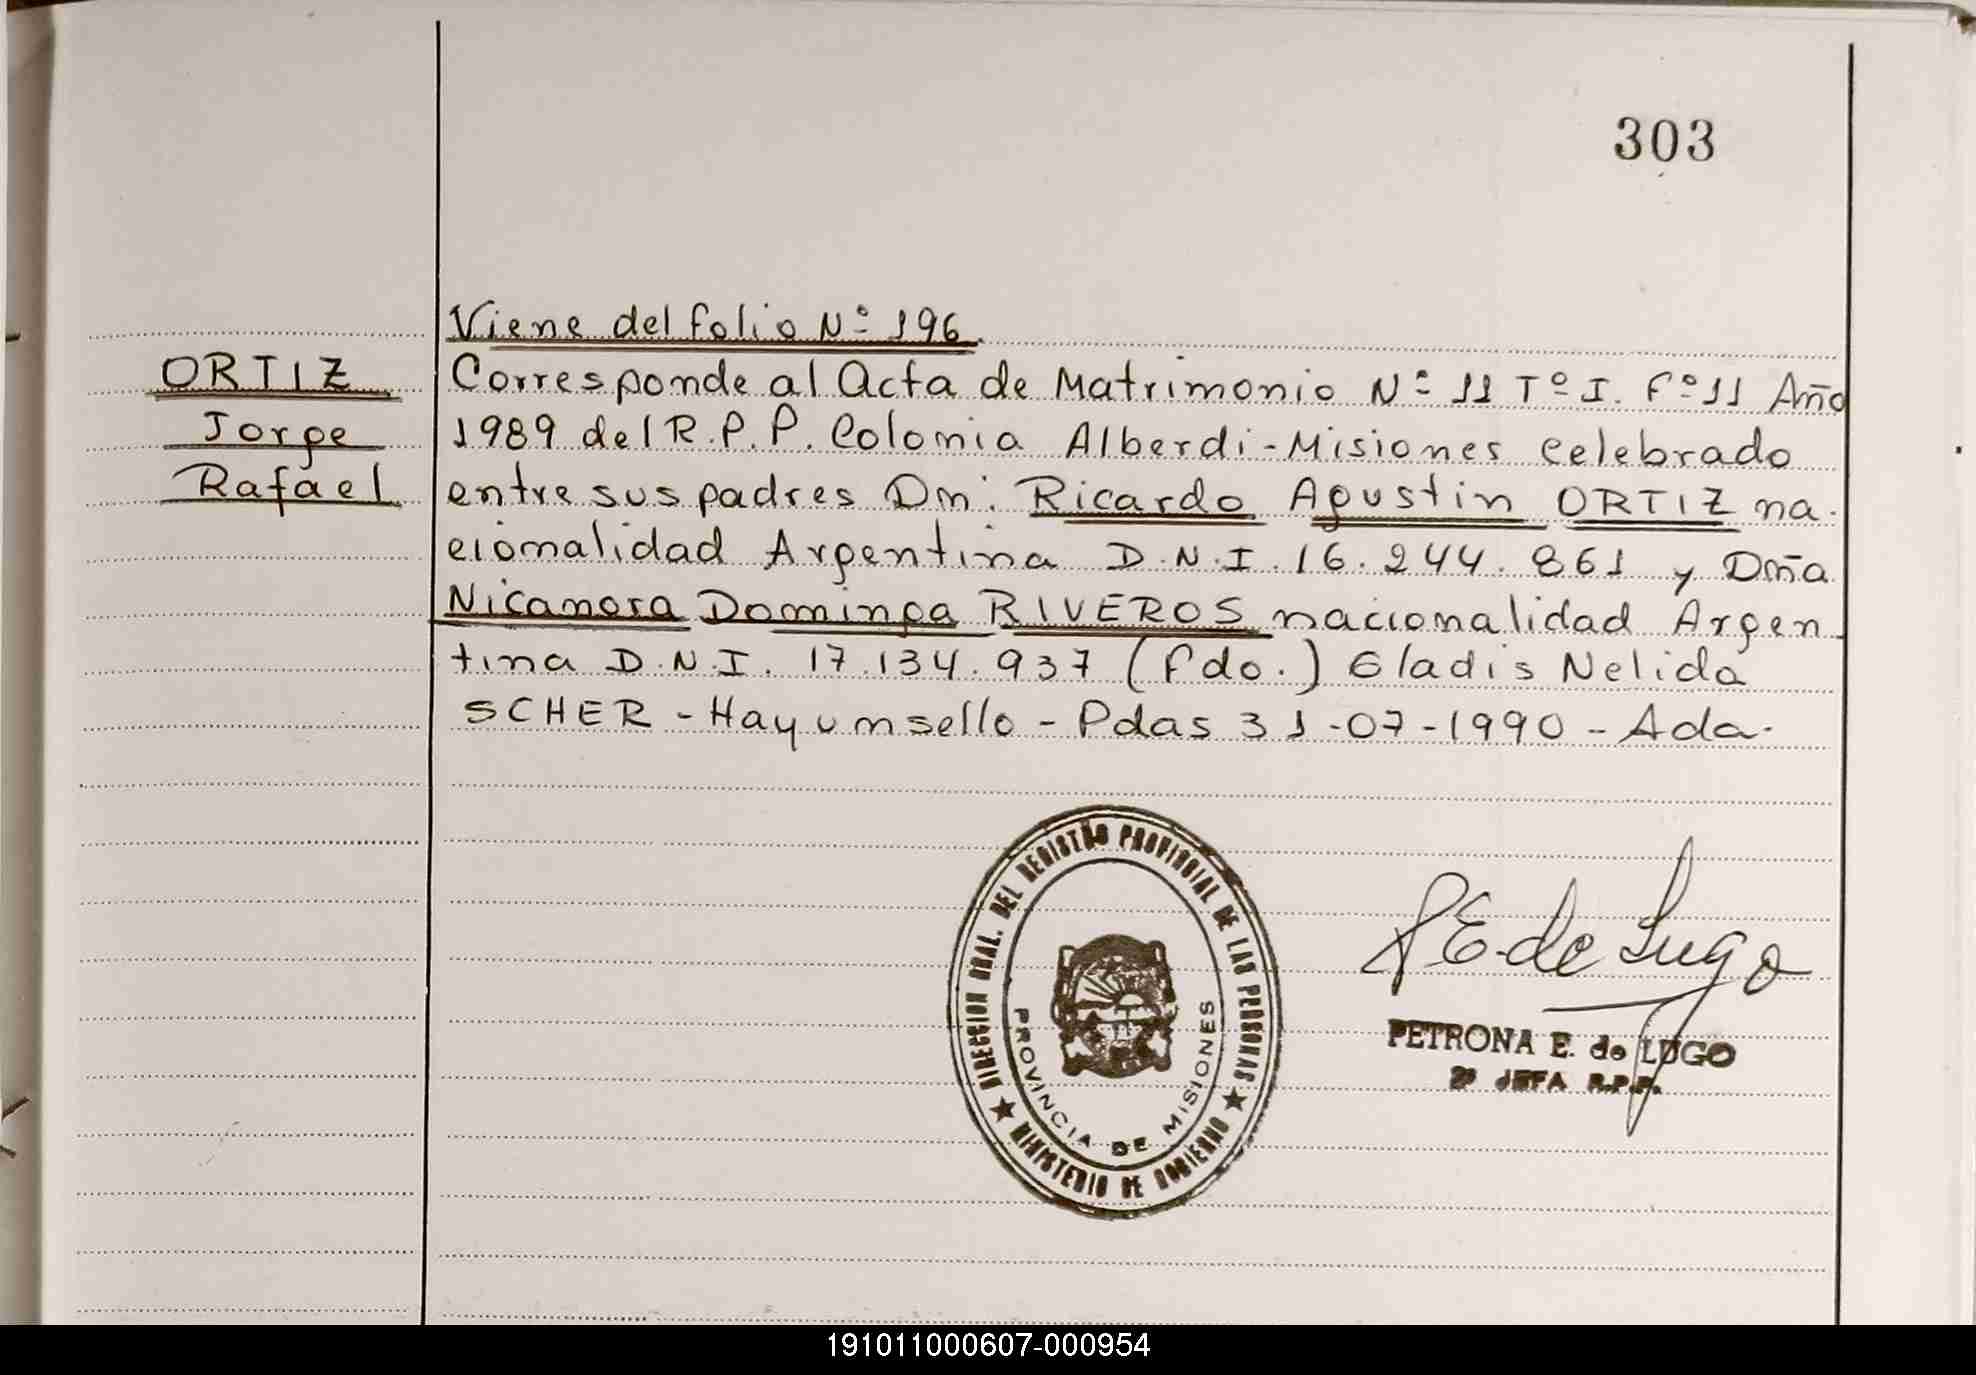 303
Viene del folio Nº 196
ORTIZ
Jorge
Rafael
Corresponde al Acta de Matrimonio Nº 11 Tº I. Fº 11 Año
1989 del R.P.P. Colonia Alberdi - Misiones celebrado
entre sus padres Dn. Ricardo Agustin ORTIZ na-
cionalidad Argentina D.N.I. 16.244.861 y Dña
Nicanora Dominga RIVEROS nacionalidad Argen
tina D.N.I. 17.134.937 (Fdo.) Gladis Nelida
SCHER - Hay um sello - Pdas 31-07-1990 - Ada.
DIRECCION GRAL. DEL REGISTRO PROVINCIAL DE LAS PERSONAS
MINISTERIO DE GOBIERNO
PROVINCIA DE MISIONES
P E. de Lugo
PETRONA E. de LUGO
2ª JEFA R.P.P.
191011000607-000954